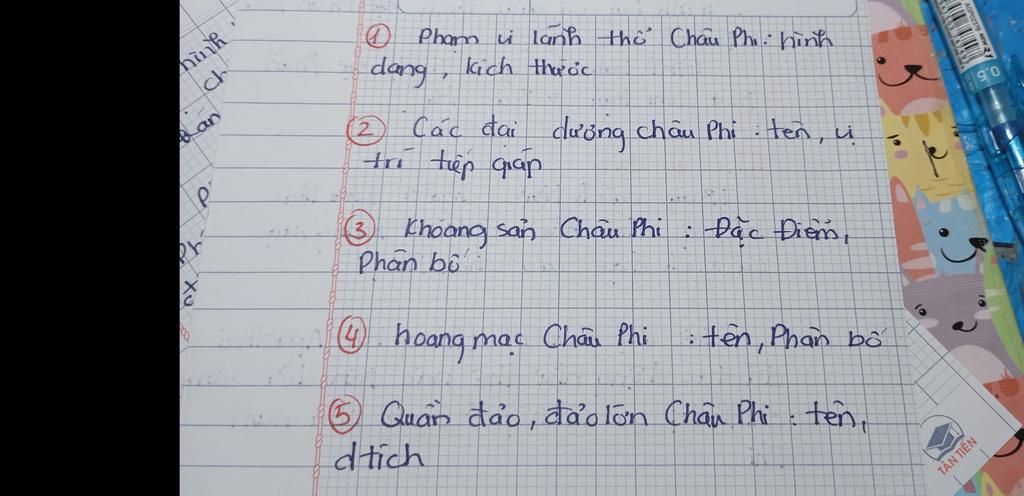 ① Phạm vi lãnh thổ Châu Phi: hình
dạng, kích thước
② Các đại dương châu Phi: tên, vị
trí tiếp giáp
③ Khoáng sản Châu Phi: Đặc Điểm,
Phân bố
④ hoang mạc Châu Phi: tên, Phân bố
⑤ Quần đảo, đảo lớn Châu Phi: tên,
dtích
hình
ch
P
cx
0.5
TÂN TIẾN